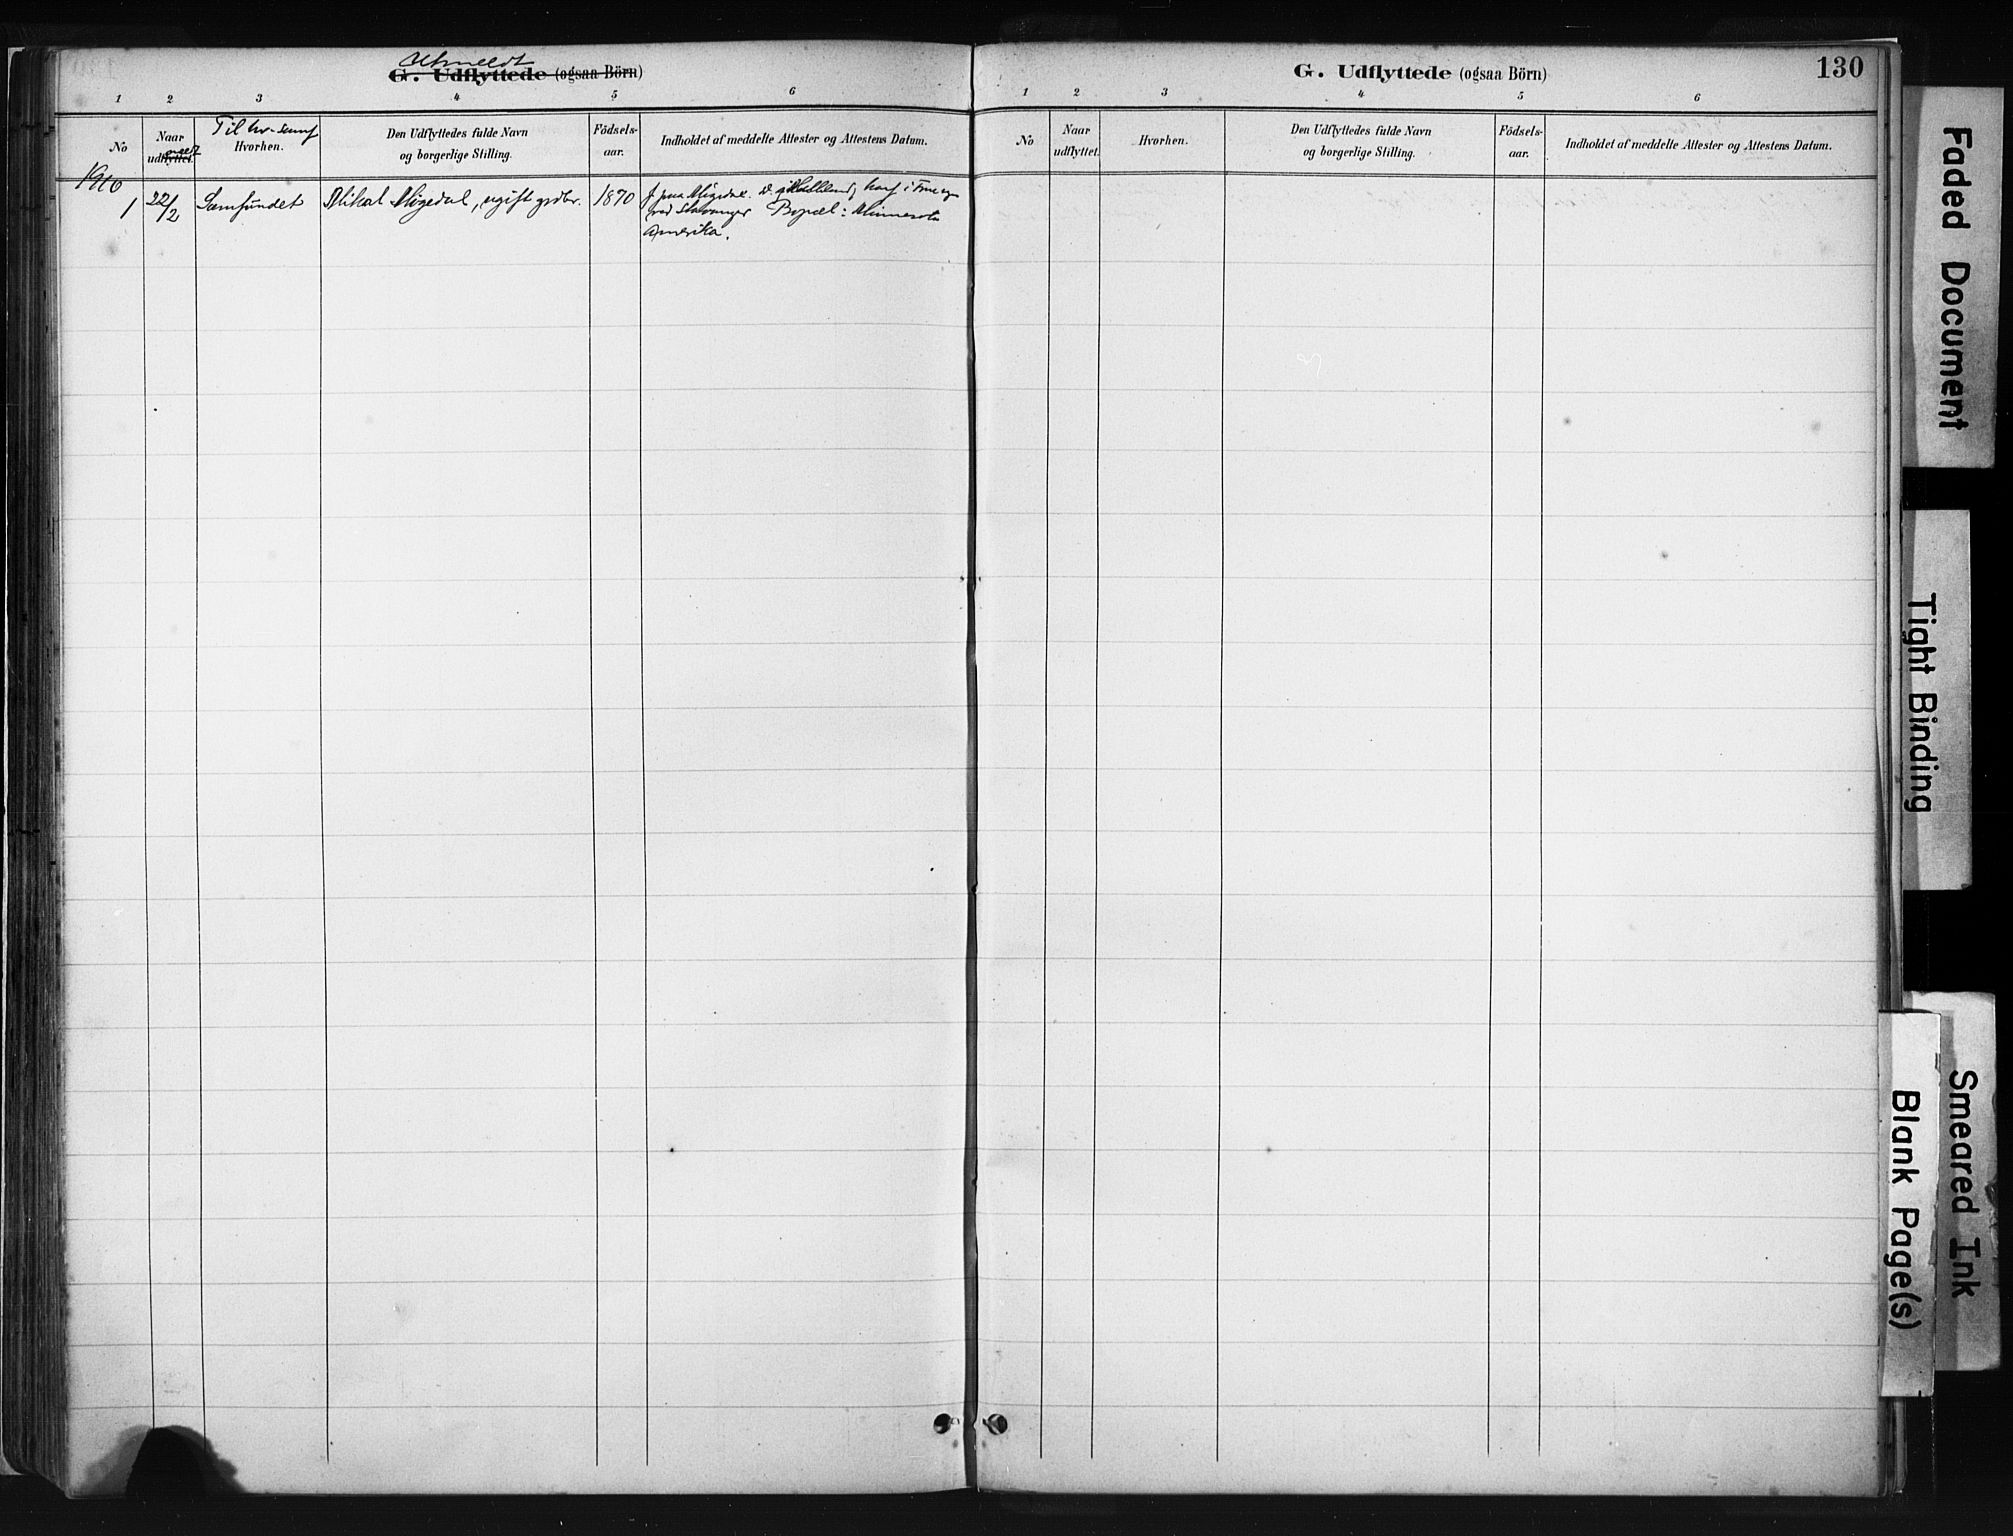 Utmeldt
G. Udflyttede (ogsaa Börn)
1 2 3 4 5 6
No
Naar udflyttet. meldt
Til hv. samf
Hvorhen.
Den Udflyttedes fulde Navn
og borgerlige Stilling.
Födsels-
aar.
Indholdet af meddelte Attester og Attestens Datum.
1910
1 22/2 Samfundet Mikal Migedal, ugift grdbr. 1870 f. paa Migedal. D. i
ved Stavanger Bopæl: Minnesota
Amerika.
G. Udflyttede (ogsaa Börn)
130
1 2 3 4 5 6
No
Naar
udflyttet.
Hvorhen.
Den Udflyttedes fulde Navn
og borgerlige Stilling.
Födsels-
aar.
Indholdet af meddelte Attester og Attestens Datum.
Faded Document
Tight Binding
Smeared Ink
Blank Page(s)